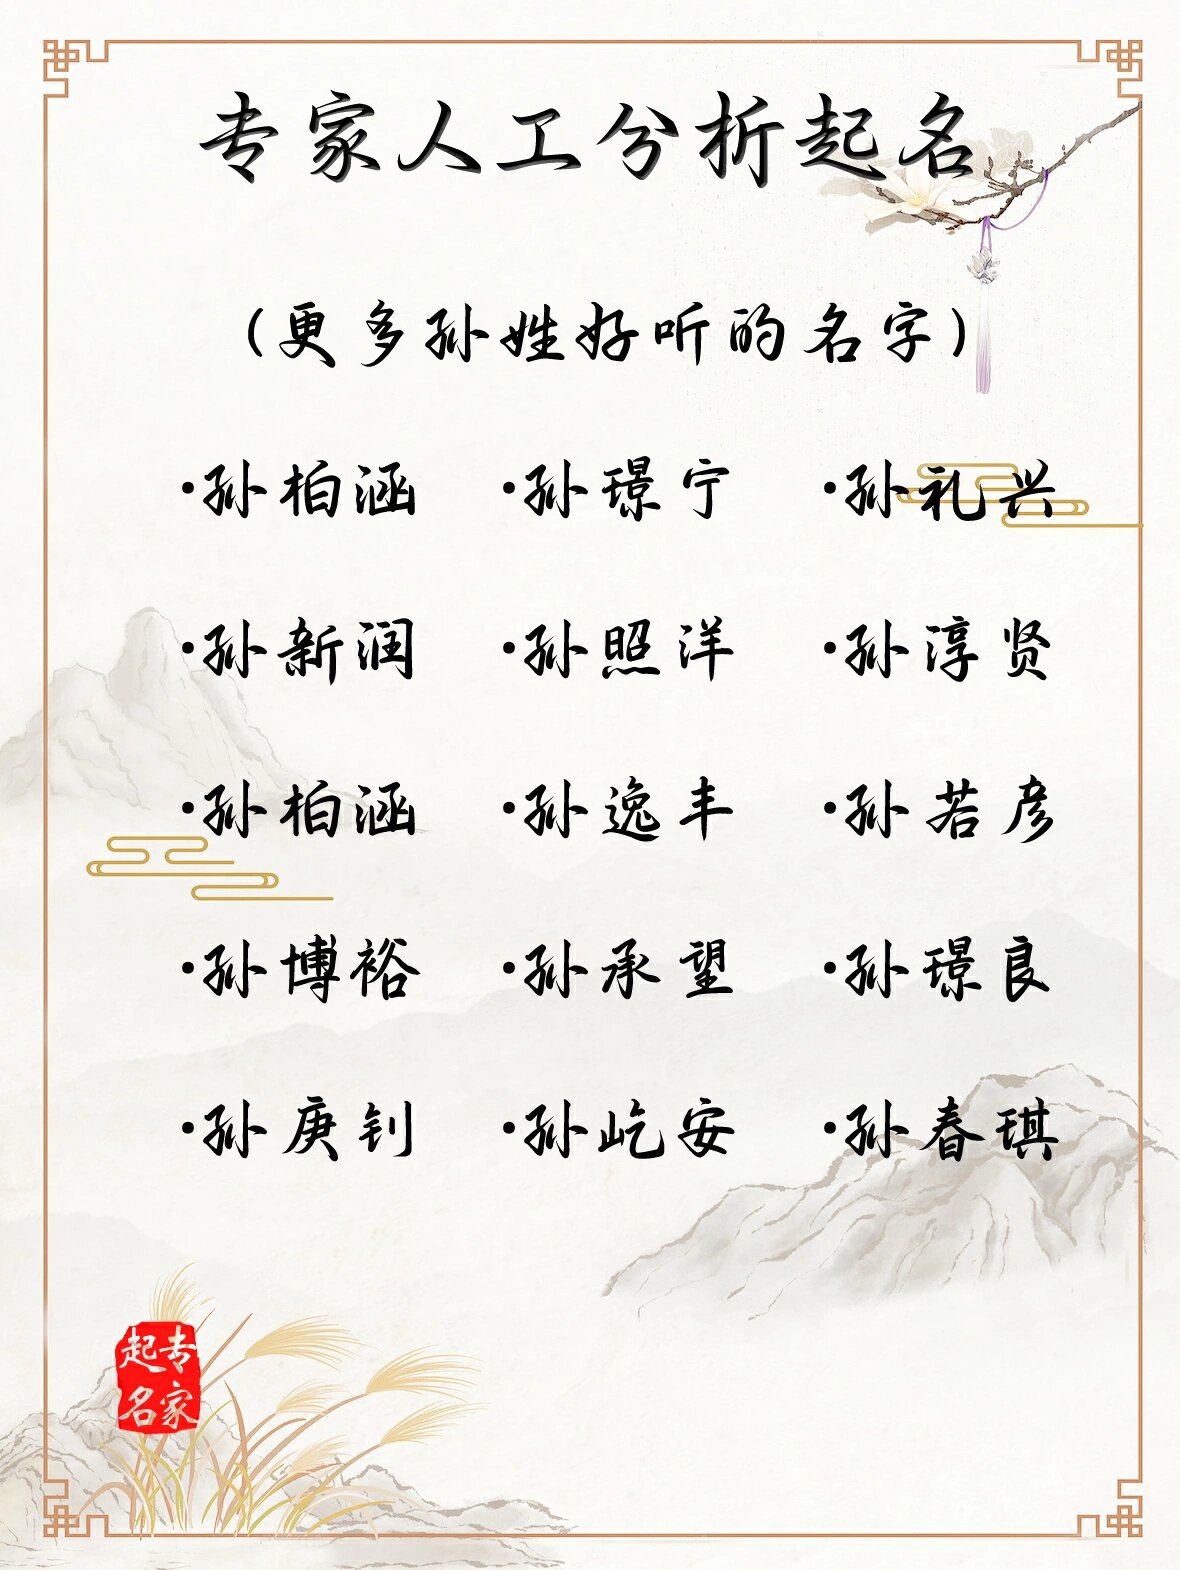 专家人工分析起名
(更多孙姓好听的名字)
·孙柏涵 ·孙璟宁 ·孙礼兴
·孙新润 ·孙照洋 ·孙淳贤
·孙柏涵 ·孙逸丰 ·孙若彦
·孙博裕 ·孙承望 ·孙璟良
·孙庚钊 ·孙屹安 ·孙春琪
专家
起名